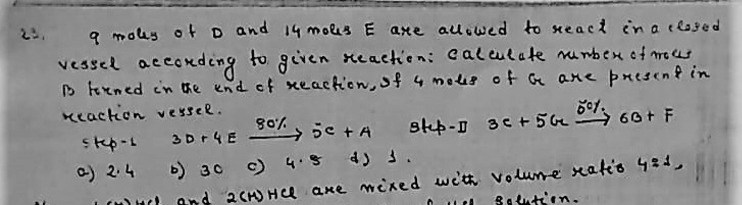 23. 9 moles of D and 14 moles E are allowed to react in a closed
vessel according to given reaction: Calculate number of moles
B formed in the end of reaction, If 4 moles of G are present in
reaction vessel.
Step-1 3D + 4E 80% → 5C + A Step-II 3C + 5G 50% → 6B + F
a) 2.4 b) 30 c) 4.8 d) 1.
and 2(M) HCl are mixed with volume ratio 4:1,
solution.